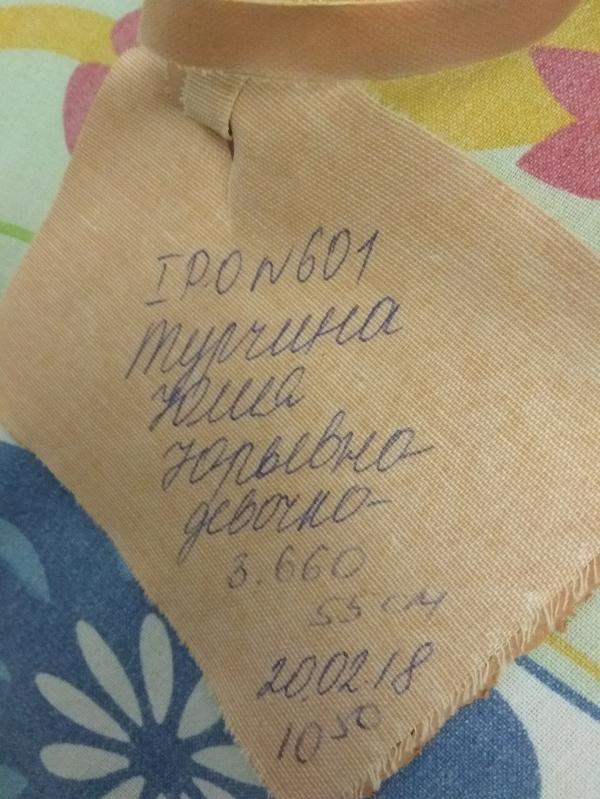 I Р.О N 601
Турчина
Юлия
Юрьевна
девочка
3.660
55 см
20.02.18
10 50